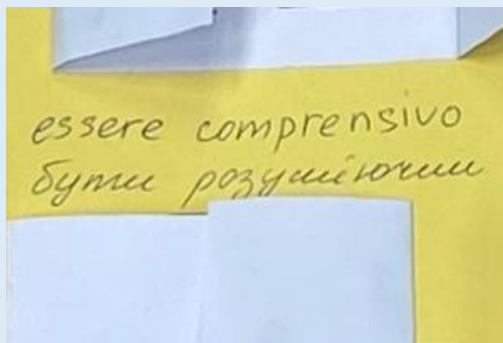 essere comprensivo
бути розуміючим